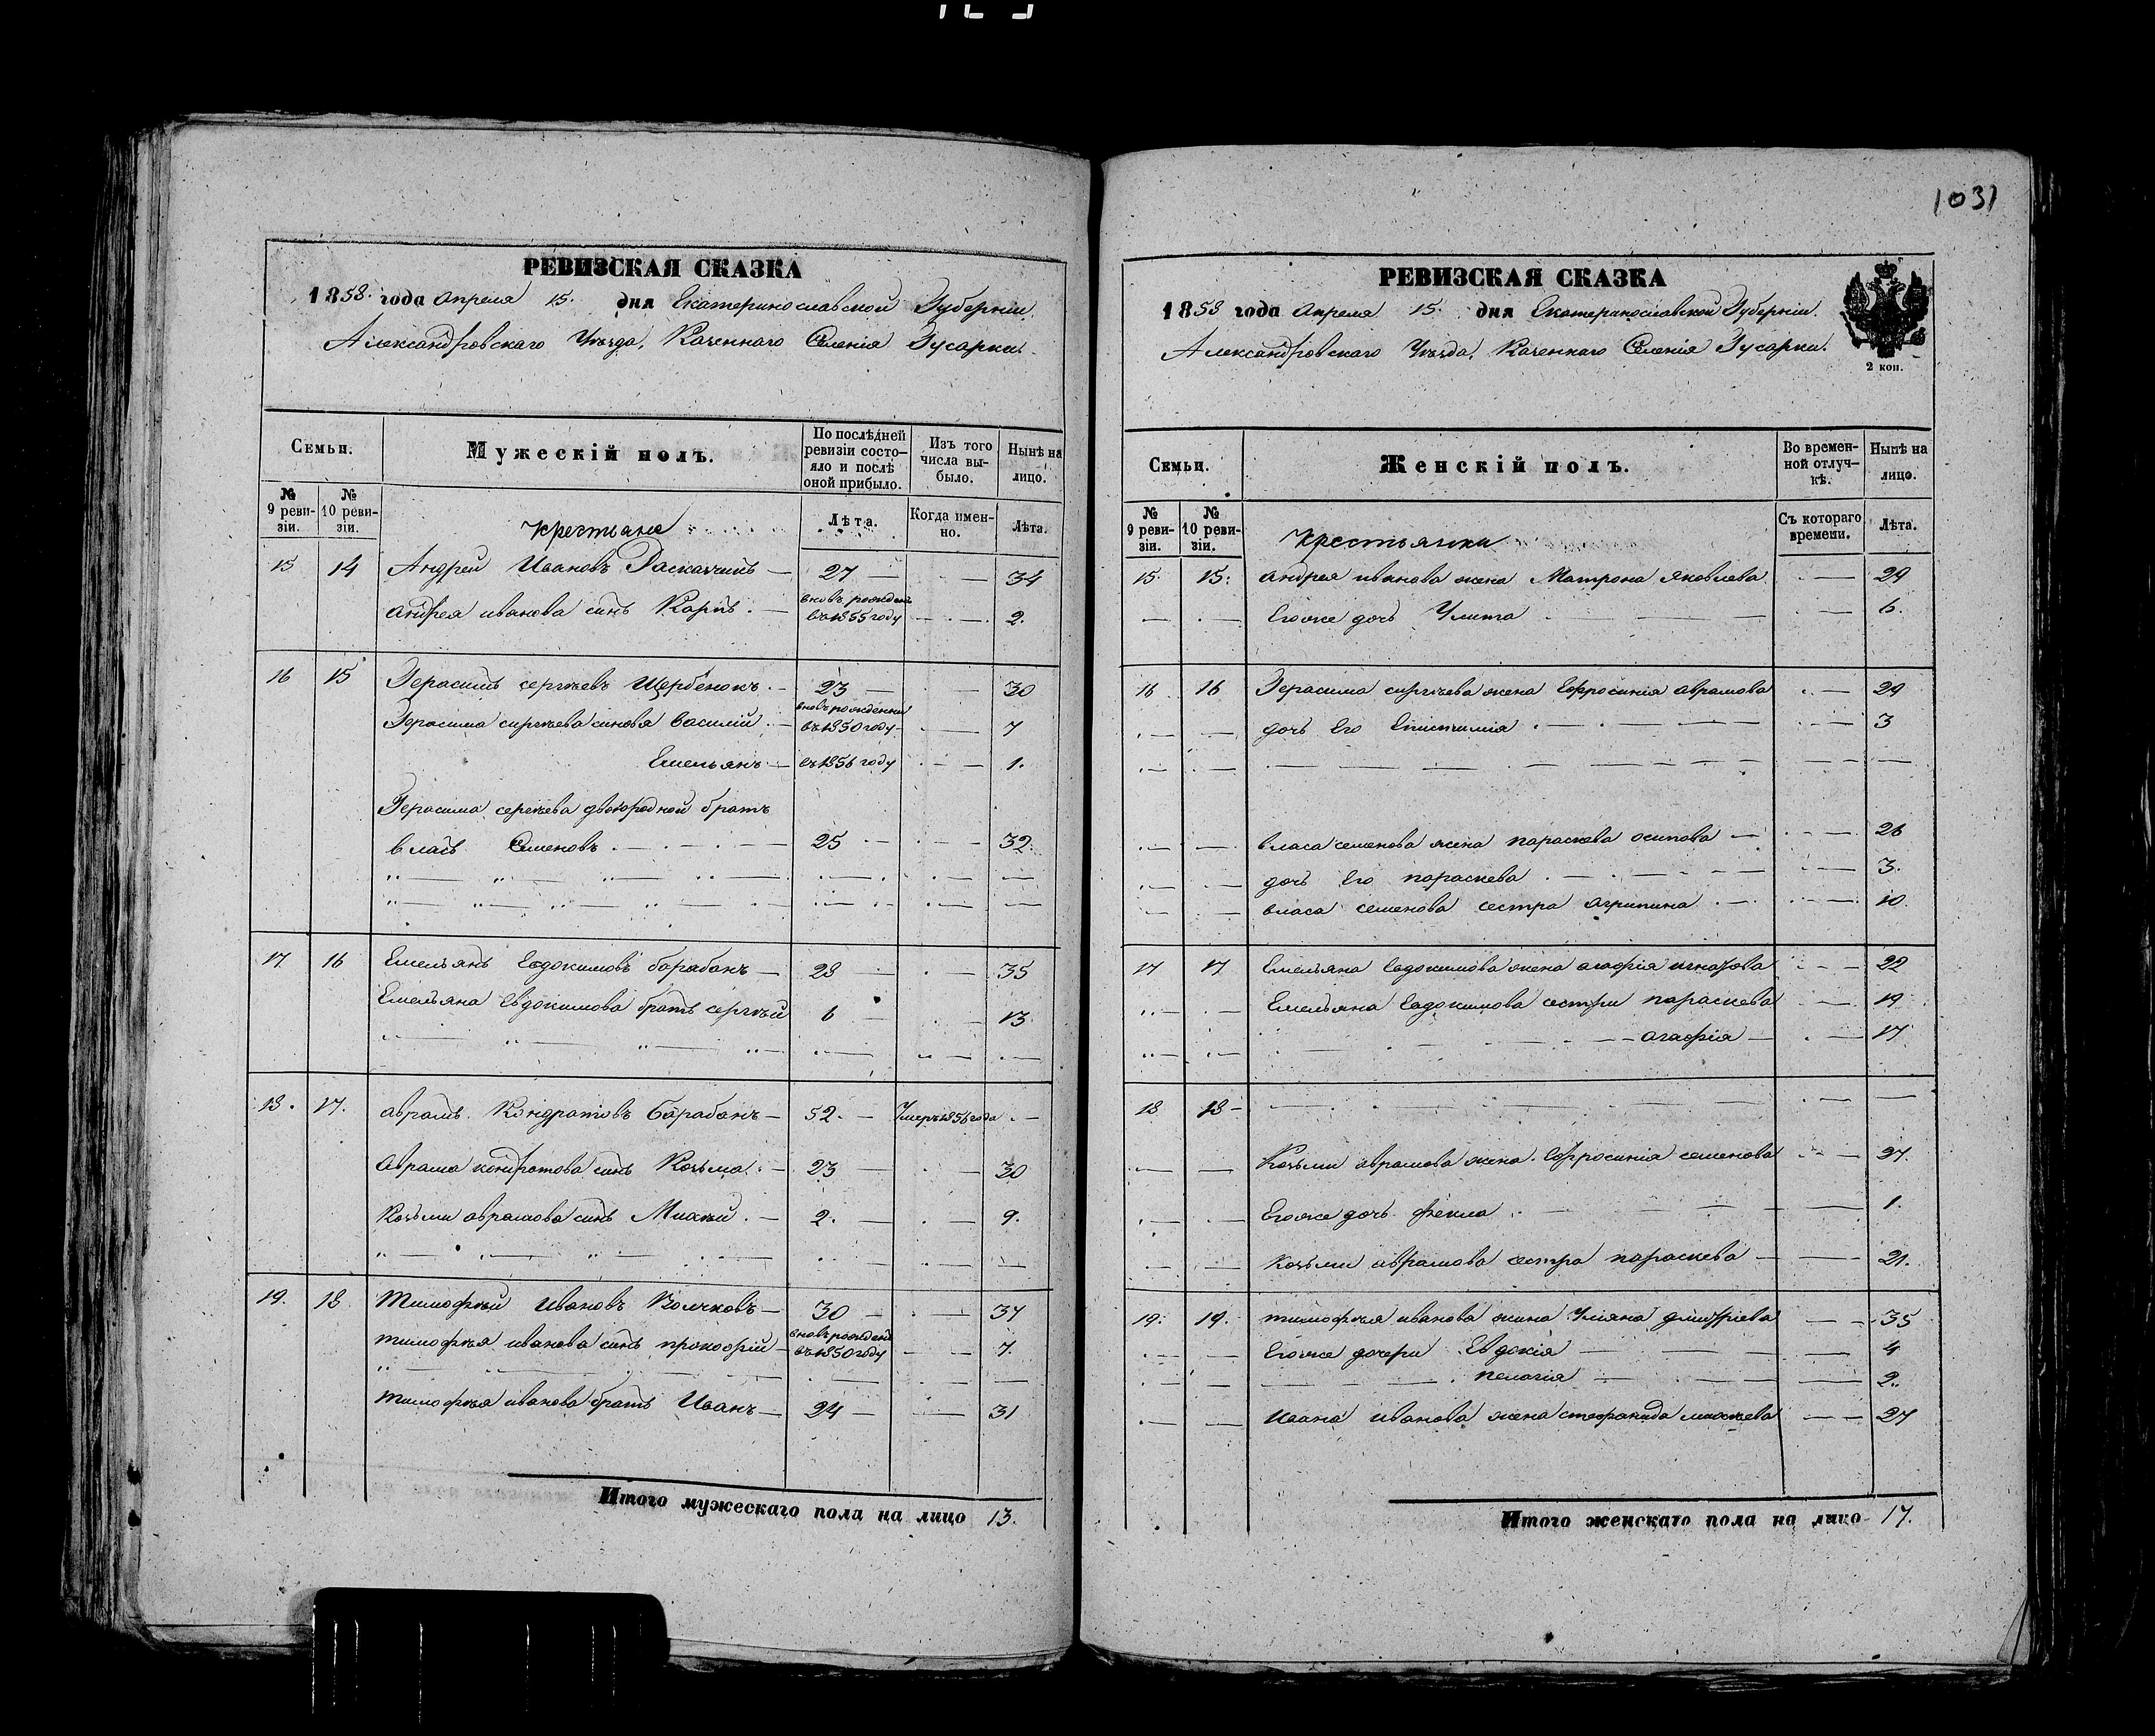 1031
РЕВИЗСКАЯ СКАЗКА
1858 года Апреля 15. дня Екатеринославской Губерніи
Александровскаго Уѣзда, Казеннаго Селенія Гусарки.
Семьи.
Мужескій полъ.
По послѣдней ревизіи состояло и послѣ оной прибыло.
Изъ того числа выбыло.
Нынѣ на лицо.
№ 9 ревизіи.
№ 10 ревизіи.
крестьяне
Лѣта.
Когда именно.
Лѣта.
15 14 Андрей Ивановъ — 27 — — 34
Андрея иванова синъ Карпъ. — вновь рожденъ въ 1855 году — 2.
16 15 Герасимъ сергѣевъ Щербенокъ. — 23 — — 30
Герасима сиргѣева синовя Василій. — вновь рожденни въ 1850 году — 7
Емельянъ — въ 1856 году — 1.
Герасима сергѣева двоюродной братъ
Власъ Семеновъ. — 25 — 32.
17 16 Емельянъ Евдокимовъ барабанъ — 28 — — 35
Емельяна Евдокимова братъ сергѣй 6 — — 13
18. 17. аврамъ Кондратовъ барабанъ — 52. — Умеръ 1856 года . —
Аврама кондратова синъ Козьма. — 23 — — 30
Козьми аврамова синъ Михѣй. — 2. — — 9.
19. 18. Тимофѣй Ивановъ — 30 — — 37
тимофѣя иванова синъ прокофій — вновь рожденъ въ 1850 году — 7.
тимофѣя иванова братъ Иванъ — 24 — — 31
Итого мужескаго пола на лицо 13.
РЕВИЗСКАЯ СКАЗКА
1858 года Апреля 15. дня Екатеринославской Губерніи.
Александровскаго Уѣзда, Казеннаго Селенія Гусарки.
2 коп.
Семьи.
Женскій полъ.
Во временной отлучкѣ.
Нынѣ на лицо.
№ 9 ревизіи.
№ 10 ревизіи.
Крестьянки
Съ котораго времени.
Лѣта.
15. 15. андрея иванова жена Матрона Яковлева — 29
Егоже дочь Улита — 6.
16 16 Герасима сиргѣева жена Ефросинія аврамова — 29
дочь Его Епистимія — 3
власа семенова жена параскева осипова — 26
дочь Его параскева — 3.
власа семенова сестра агрипина — 10.
17 17 Емельяна Евдокимова жена агафія игнатова — 22
Емельяна Евдокимова сестри параскева — 19
агафія — 17
18 18 —
Козьми аврамова жена Ефросинія семенова — 27.
Егоже дочь фекла — 1.
Козьми аврамова сестра параскева — 21.
19. 19. тимофѣя иванова жина Уліяна дмитріева — 35
Егоже дочери Евдокія — 4
пелагія — 2.
Ивана иванова жена стефанида михѣева — 27
Итого женскаго пола на лицо 17.